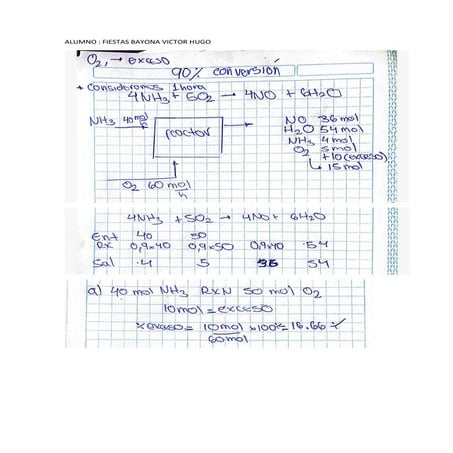 ALUMNO : FIESTAS BAYONA VICTOR HUGO
O2, → exceso
90% conversion
* Consideramos 1 hora
4NH3 + 5O2 → 4NO + 6H2O
NH3 40 mol/h
reactor
O2 60 mol/h
NO 36 mol
H2O 54 mol
NH3 4 mol
O2 5 mol
+10 (exceso)
↳ 15 mol
4NH3 + 5O2 → 4NO + 6H2O
Ent 40 50
RX 0,9x40 0,9x50 0,9x40 54
Sal 4 5 36 54
a) 40 mol NH3 RXN 50 mol O2
10 mol = exceso
% exceso = 10 mol / 60 mol x 100% = 16.66 %